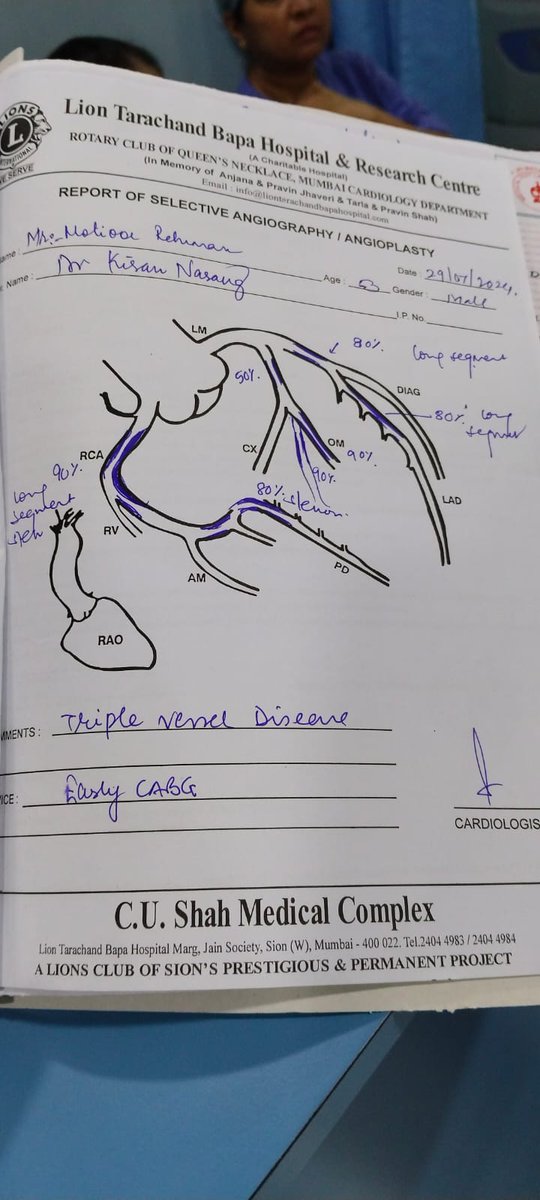 LIONS
L
INTERNATIONAL
WE SERVE
Lion Tarachand Bapa Hospital & Research Centre
(A Charitable Hospital)
ROTARY CLUB OF QUEEN'S NECKLACE, MUMBAI CARDIOLOGY DEPARTMENT
(In Memory of Anjana & Pravin Jhaveri & Tarla & Pravin Shah)
Email : info@liontarachandbapahospital.com
REPORT OF SELECTIVE ANGIOGRAPHY / ANGIOPLASTY
ame : Mr. Rehman
Date : 29/07/2024.
r. Name : Dr Kisan Age : 53 Gender : Male
I.P. No.
LM
80% long segment
50%.
DIAG
80% long
CX
OM
90%
90%
LAD
RCA
90%
long
segment
80%
RV
AM
PD
RAO
MMENTS : Triple vessel Disease
ICE : Early CABG
CARDIOLOGIS
C.U. Shah Medical Complex
Lion Tarachand Bapa Hospital Marg, Jain Society, Sion (W), Mumbai - 400 022. Tel.2404 4983 / 2404 4984
A LIONS CLUB OF SION'S PRESTIGIOUS & PERMANENT PROJECT